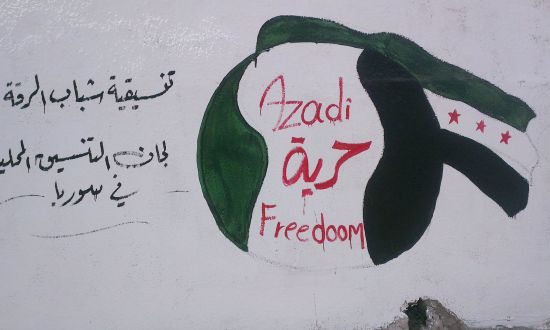 تنسيقية شباب الرقة
لجان التنسيق المحلية
في سوريا
Azadi
حرية
Freedoom